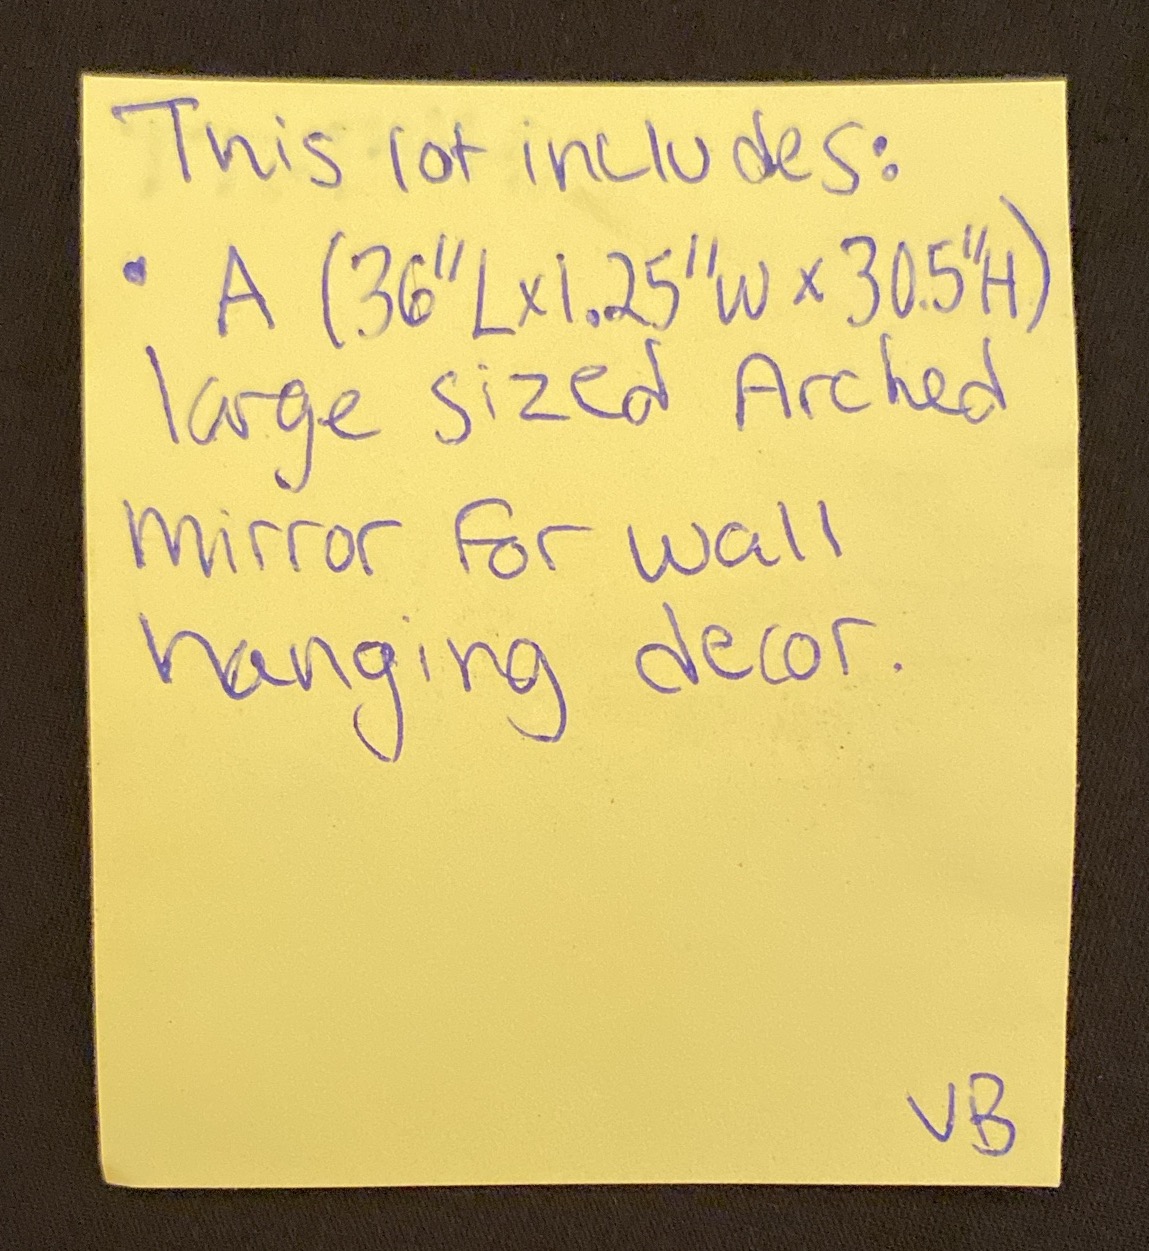 This lot includes:
• A (36"L x 1.25"W x 30.5"H)
large sized Arched
mirror for wall
hanging decor.
VB